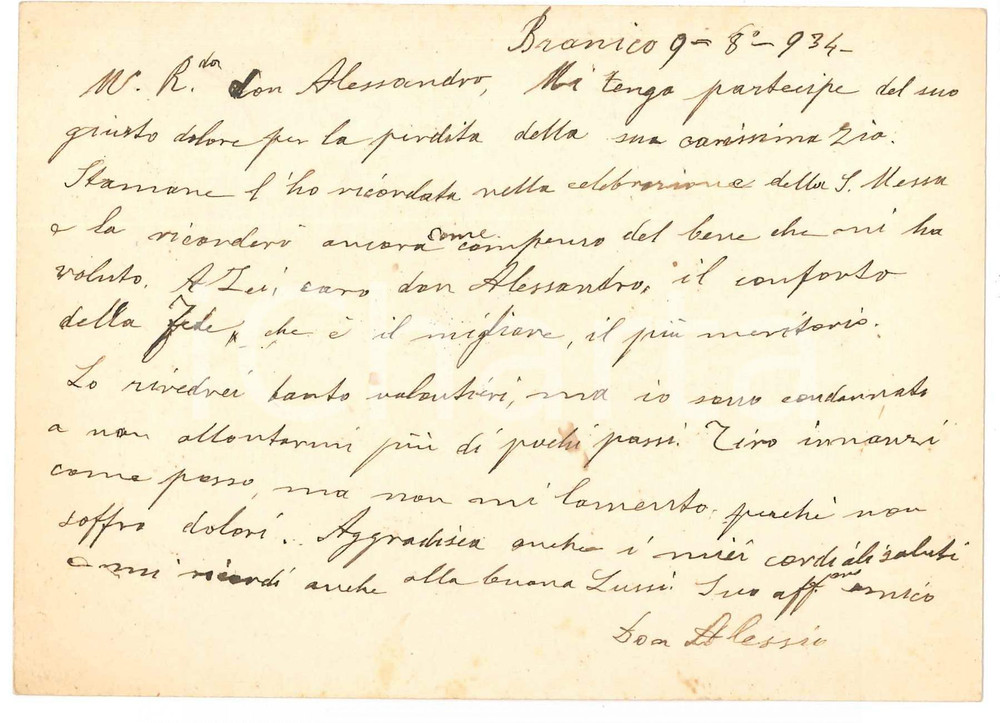 Branico 9 = 8° - 934 -
M. R.do don Alessandro, Mi tengo partecipe del suo
giusto dolore per la perdita della sua carissima Zia.
Stamane l'ho ricordata nella celebrazione della S. Messa
e la ricorderò ancora come compenso del bene che mi ha
voluto. A Lei, caro don Alessandro, il conforto
della Fede, che è il migliore, il più meritorio.
Lo rivedrei tanto volentieri, ma io sono condannato
a non allontarmi più di pochi passi. Tiro innanzi
come posso, ma non mi lamento, perchè non
soffro dolori. Aggradisca anche i miei cordiali saluti
e mi ricordi anche alla buona Suo aff.mo amico
Don Alessio